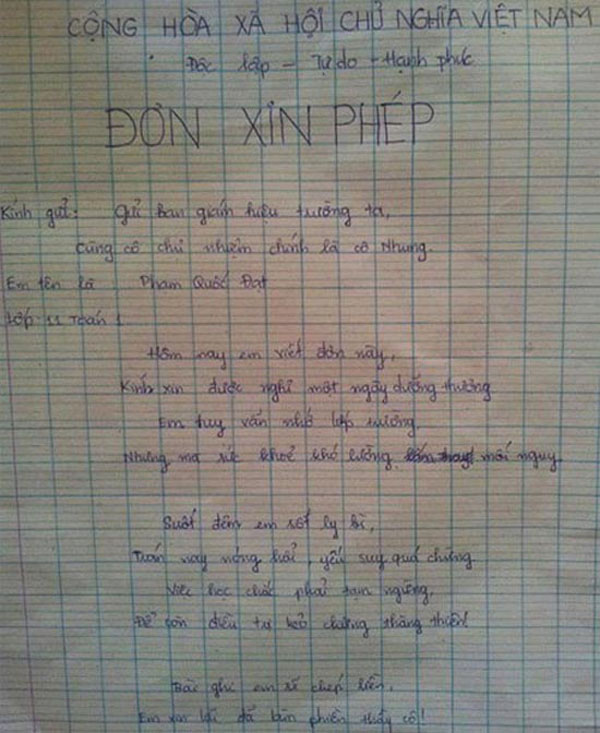 CỘNG HÒA XÃ HỘI CHỦ NGHĨA VIỆT NAM
Độc lập - Tự do - Hạnh phúc
ĐƠN XIN PHÉP
Kính gửi: Gửi Ban giám hiệu trường ta,
Cùng cô chủ nhiệm chính là cô Nhung.
Em tên là Phạm Quốc Đạt
Lớp 11 Toán 1
Hôm nay em viết đơn này,
Kính xin được nghỉ một ngày dưỡng thương
Em tuy vẫn nhớ lớp trường,
Nhưng mà sức khoẻ khó lường mối nguy
Suốt đêm em sốt ly bì,
Trán nay nóng hổi, yếu suy quá chừng
Việc học chắc phải tạm ngừng,
Để còn điều trị kẻo chừng thăng thiên!
Bài ghi em sẽ chép liền,
Em xin lỗi đã làm phiền thầy cô!